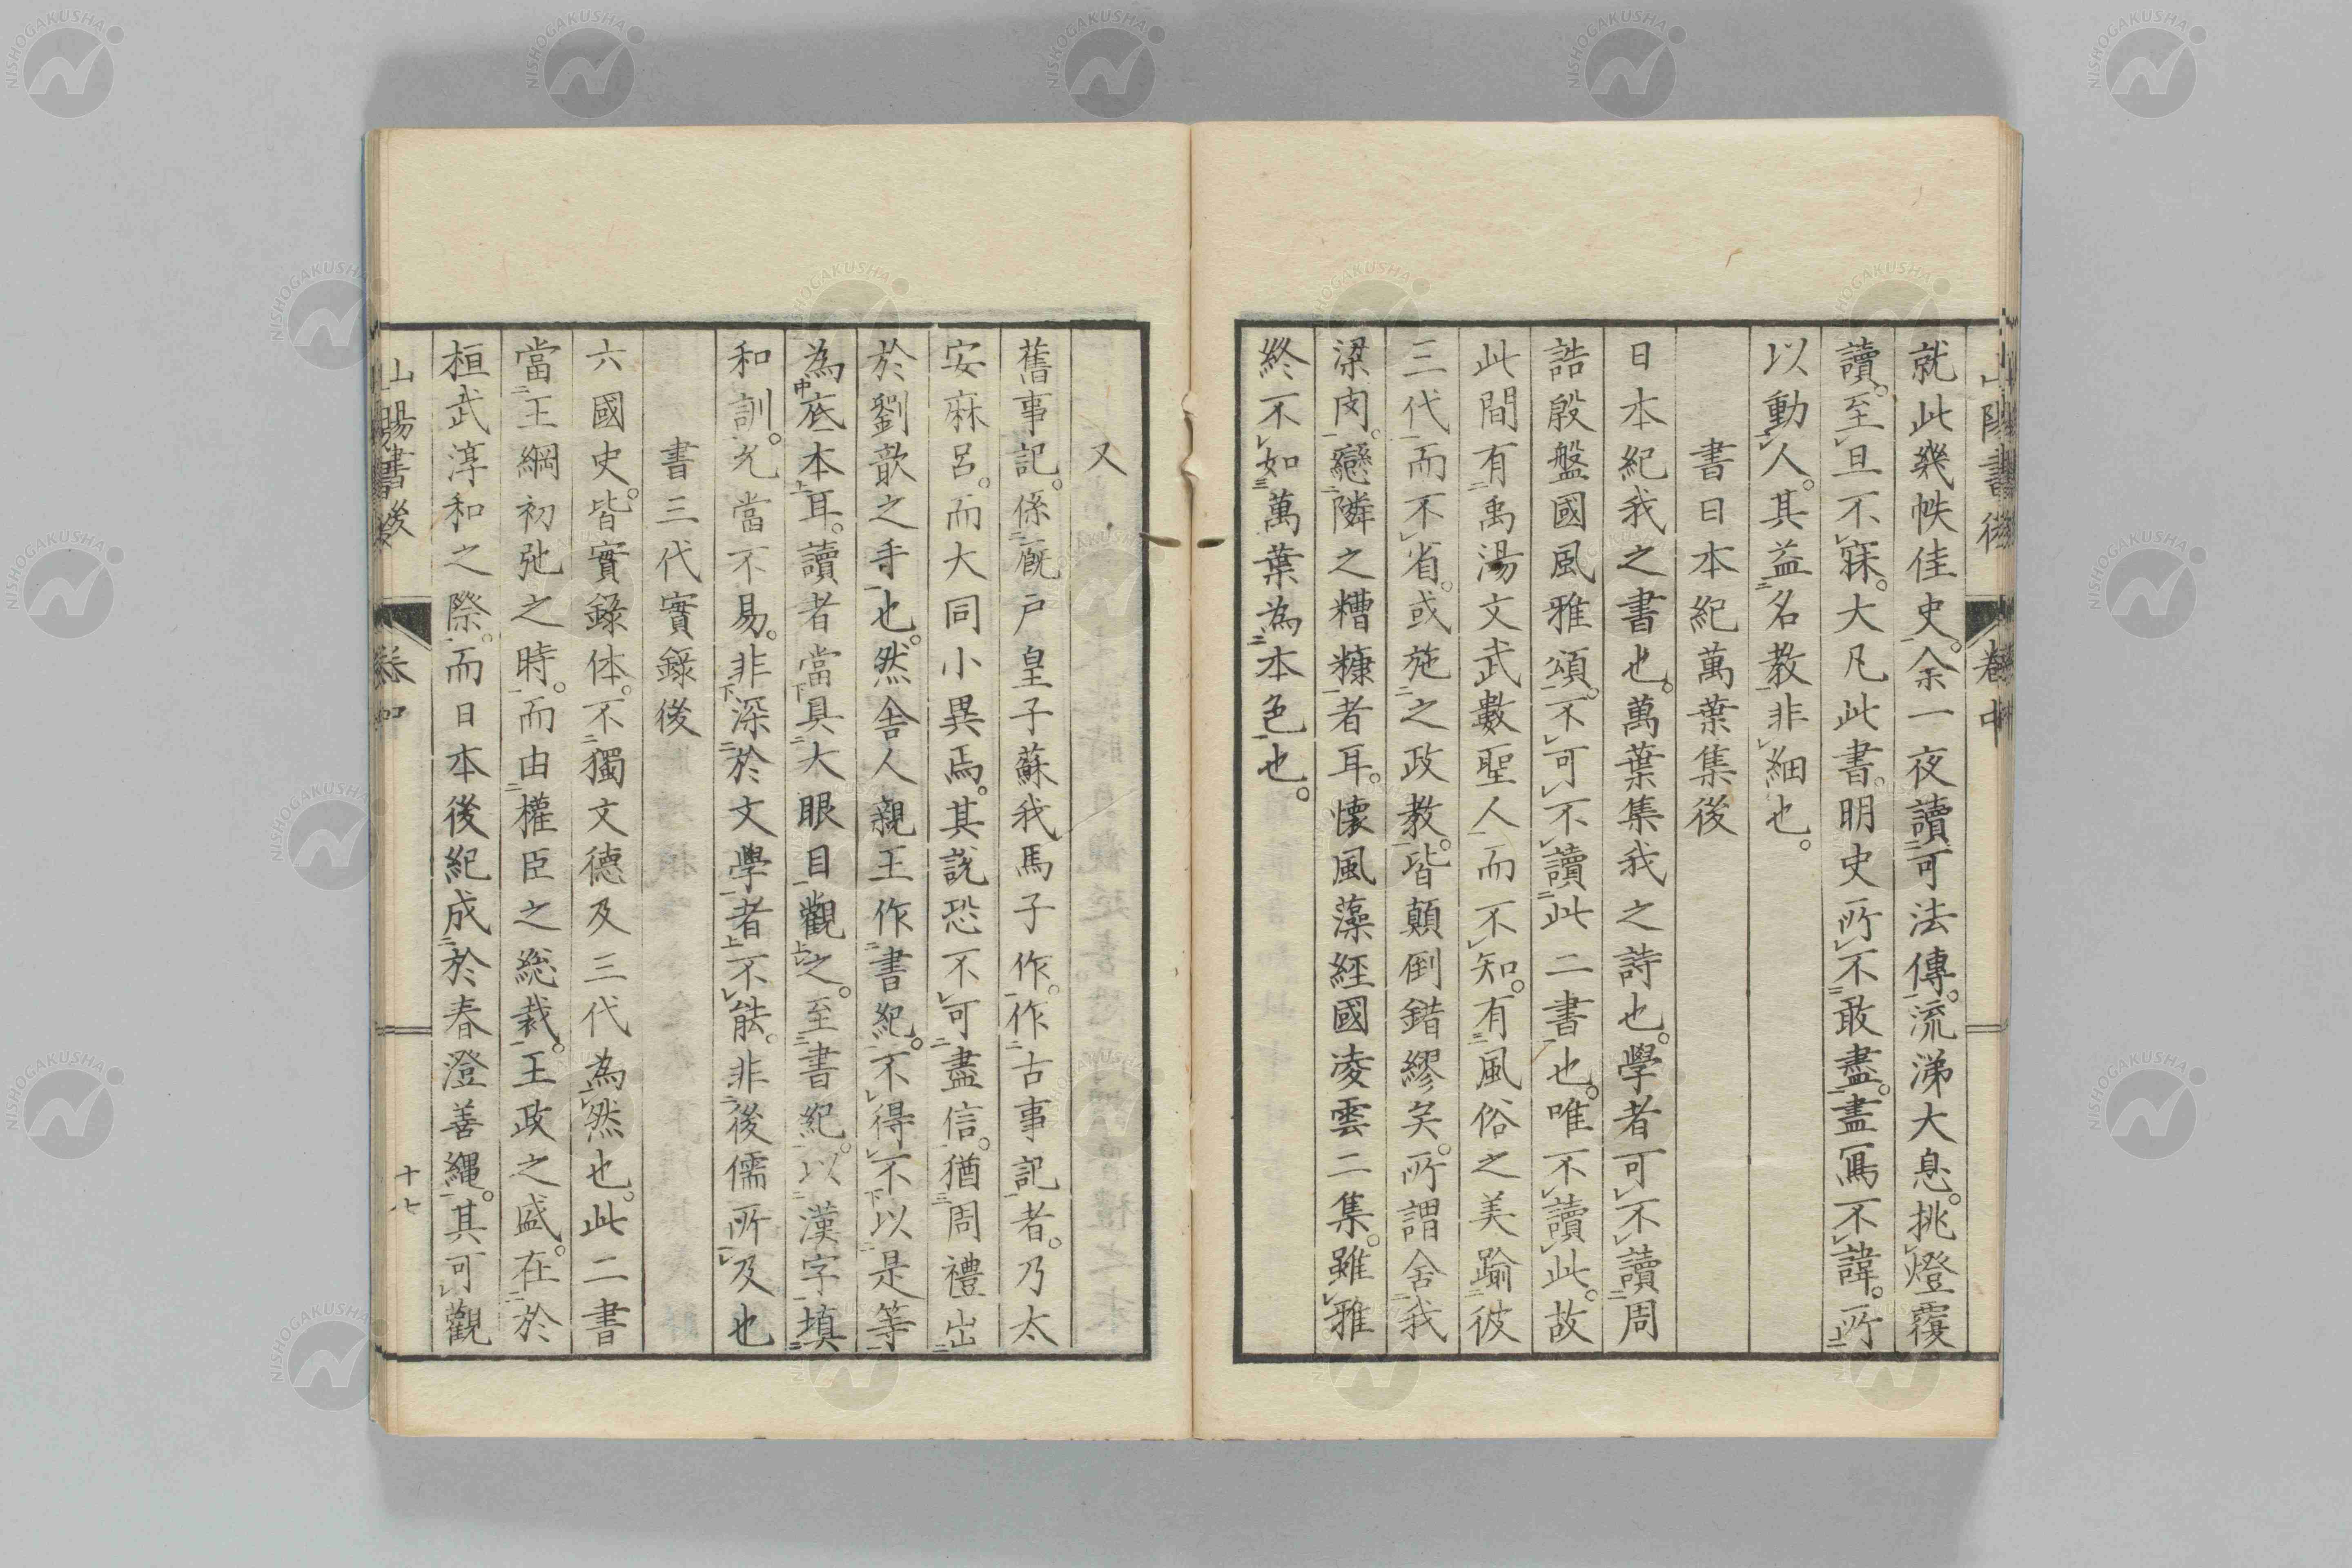 山陽書後 卷中
就此幾帙佳史。余一夜讀可法傳。流涕大息。挑燈覆
讀。至旦不寐。大凡此書。明史所不敢盡。盡寫不諱。所
以動人。其益名教非細也。
書日本紀萬葉集後
日本紀我之書也。萬葉集我之詩也。學者可不讀周
誥殷盤國風雅頌。不可不讀此二書也。唯不讀此。故
此間有禹湯文武數聖人而不知。有風俗之美踰彼
三代而不省。或施之政教。皆顛倒錯繆矣。所謂舍我
梁肉。戀隣之糟糠者耳。懐風藻經國凌雲二集。雖雅
終不如萬葉為本色也。
又
舊事記。係厩戸皇子蘇我馬子作。作古事記者。乃太
安麻呂。而大同小異焉。其説恐不可盡信。猶周禮出
於劉歆之手也。然舎人親王作書紀。不得不以是等
為底本耳。讀者當具大眼目觀之。至書紀。以漢字填
和訓。尤當不易。非深於文學者不能。非後儒所及也
書三代實録後
六國史。皆實錄体。不獨文德及三代為然也。此二書
當王綱初弛之時。而由權臣之総裁。王政之盛。在於
桓武淳和之際。而日本後紀成於春澄善縄。其可觀
山陽書後 卷中 十七
NISHOGAKUSHA